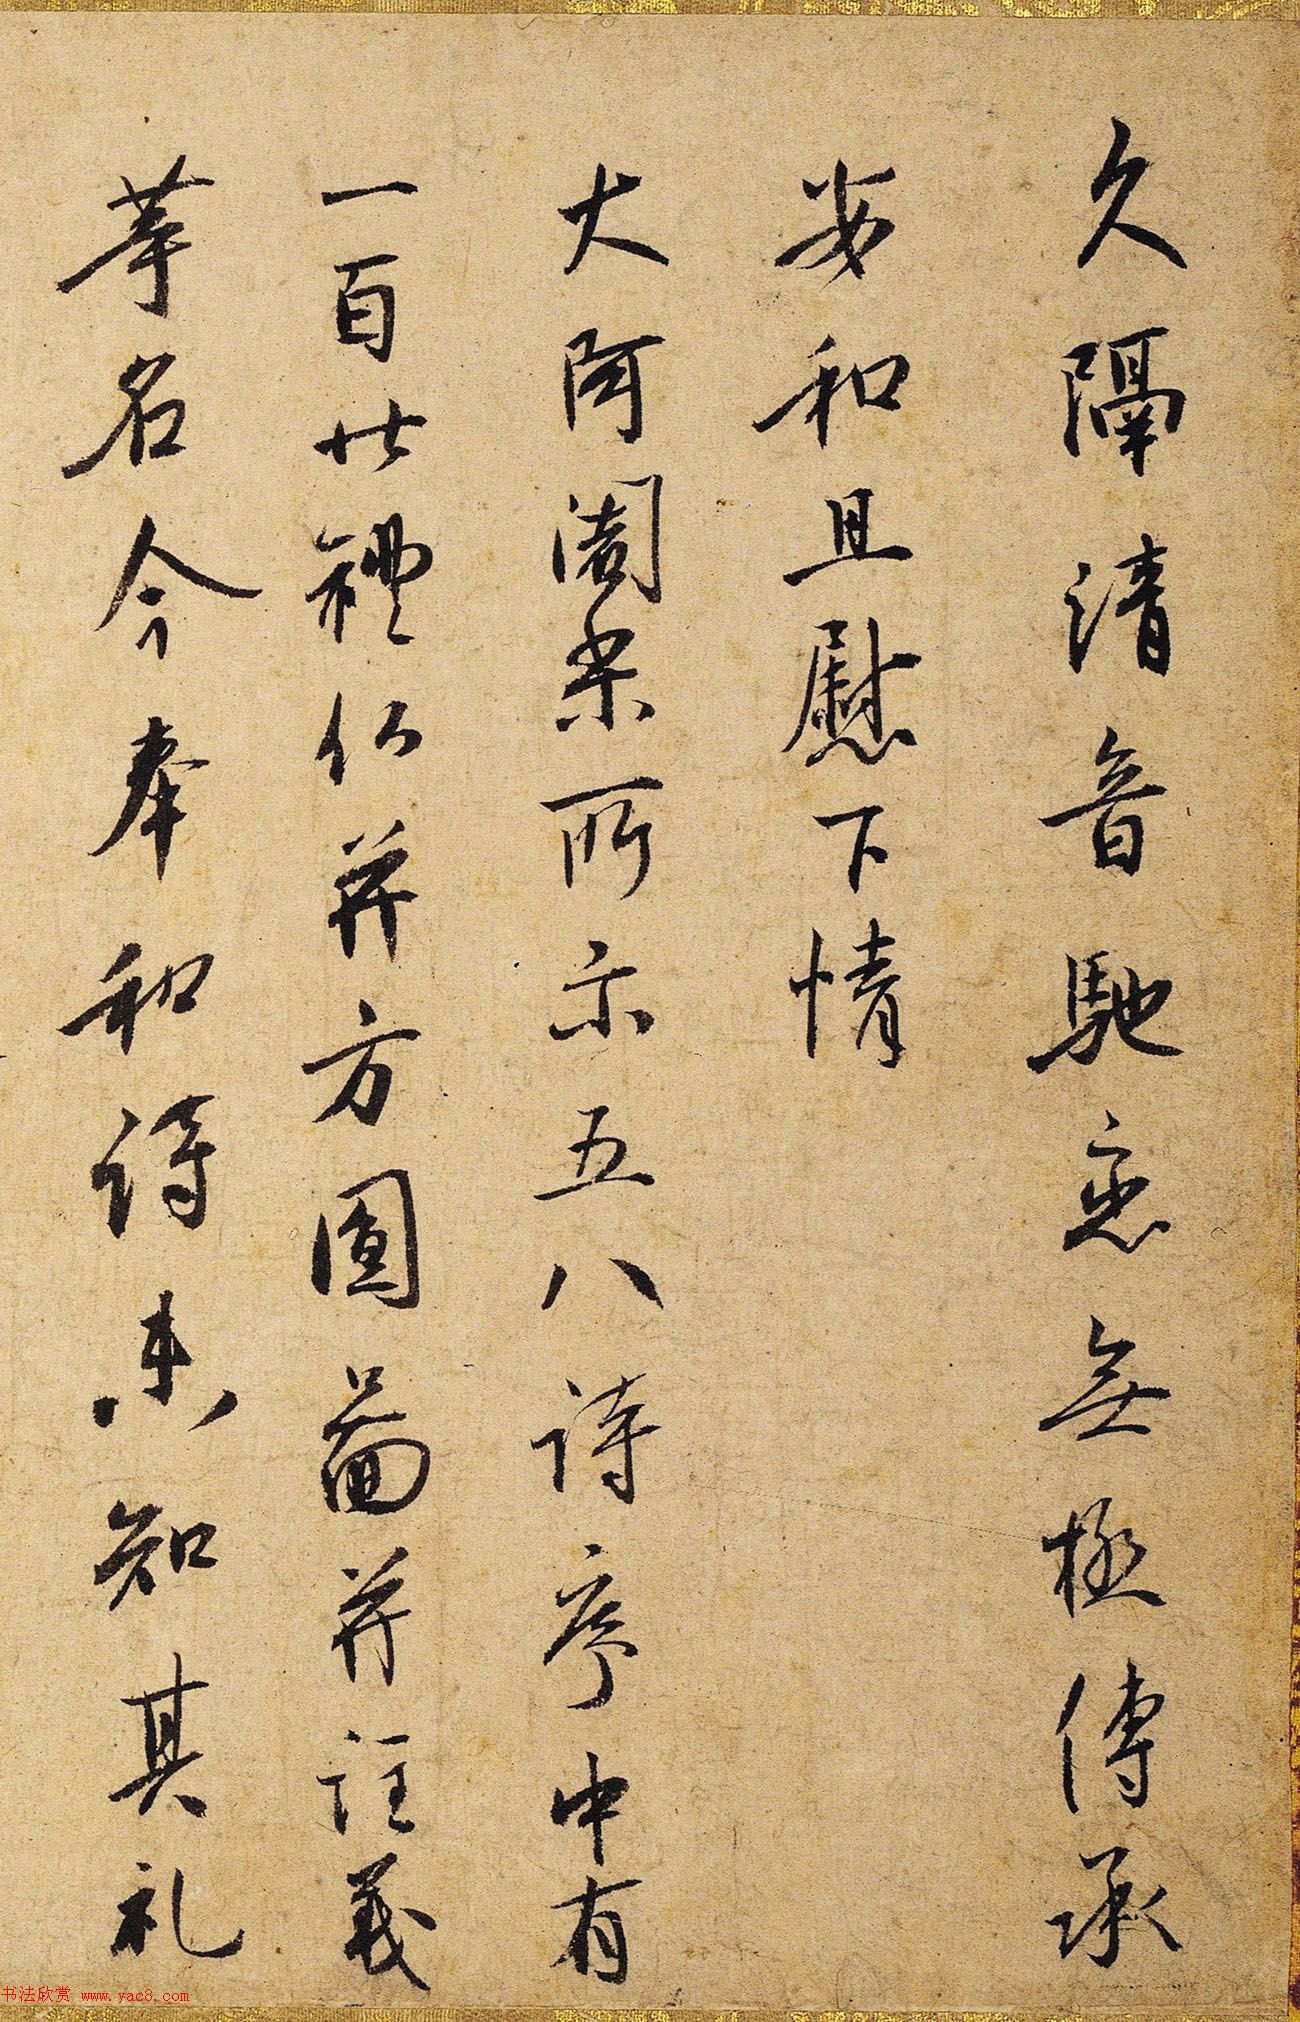 久隔清音馳恋無極傳承
安和且慰下情
大阿闍梨所示五八詩序中有
一百廿禮仏并方圓啚并註義
等名今奉和詩未知其礼
书法欣赏 www.yac8.com